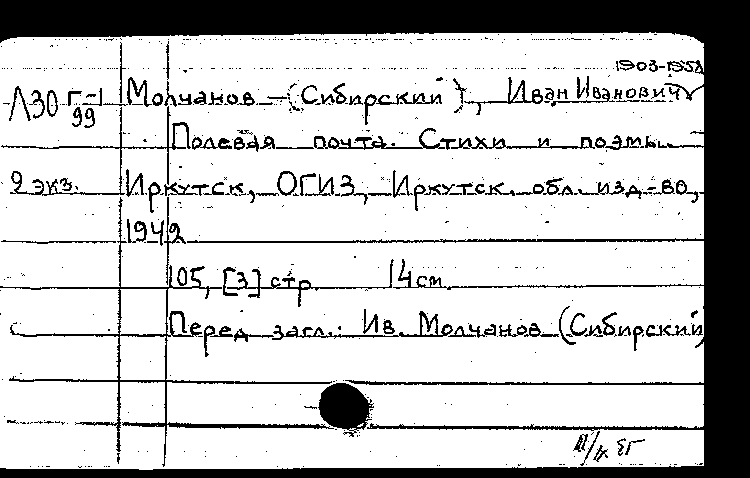 1903-1958
Л30 Г-1/99 Молчанов-(Сибирский), Иван Иванович
Полевая почта. Стихи и поэмы.
2 экз. Иркутск, ОГИЗ, Иркутск. обл. изд-во,
1942
105, [3] стр. 14 см.
Перед загл.: Ив. Молчанов (Сибирский)